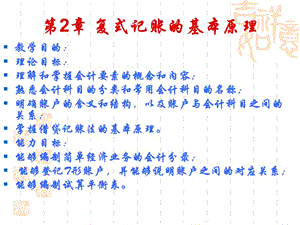 第2章 复式记账的基本原理
教学目的:
理论目标:
理解和掌握会计要素的概念和内容;
熟悉会计科目的分类和常用会计科目的名称;
明确账户的含义和结构,以及账户与会计科目之间的
关系;
掌握借贷记账法的基本原理。
能力目标:
能够编制简单经济业务的会计分录;
能够登记T形账户,并能够说明账户之间的对应关系;
能够编制试算平衡表。